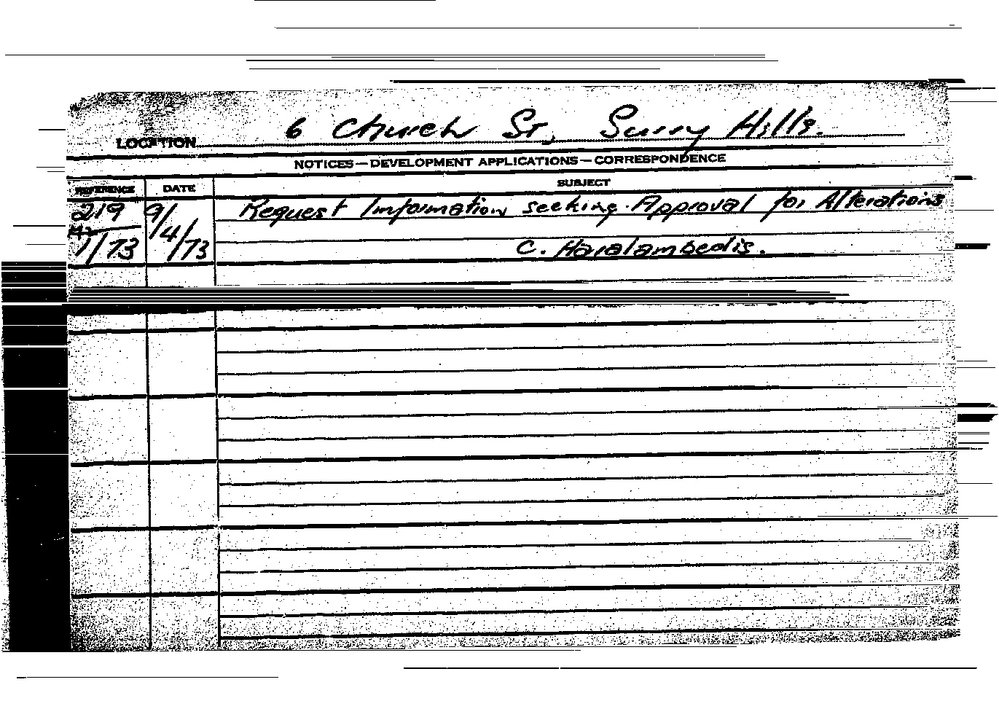 LOCATION 6 Church St, Surry Hills.
NOTICES—DEVELOPMENT APPLICATIONS—CORRESPONDENCE
REFERENCE DATE SUBJECT
219 9/4/73 Request Information seeking Approval for Alterations
1/73 C. Haralambedis.